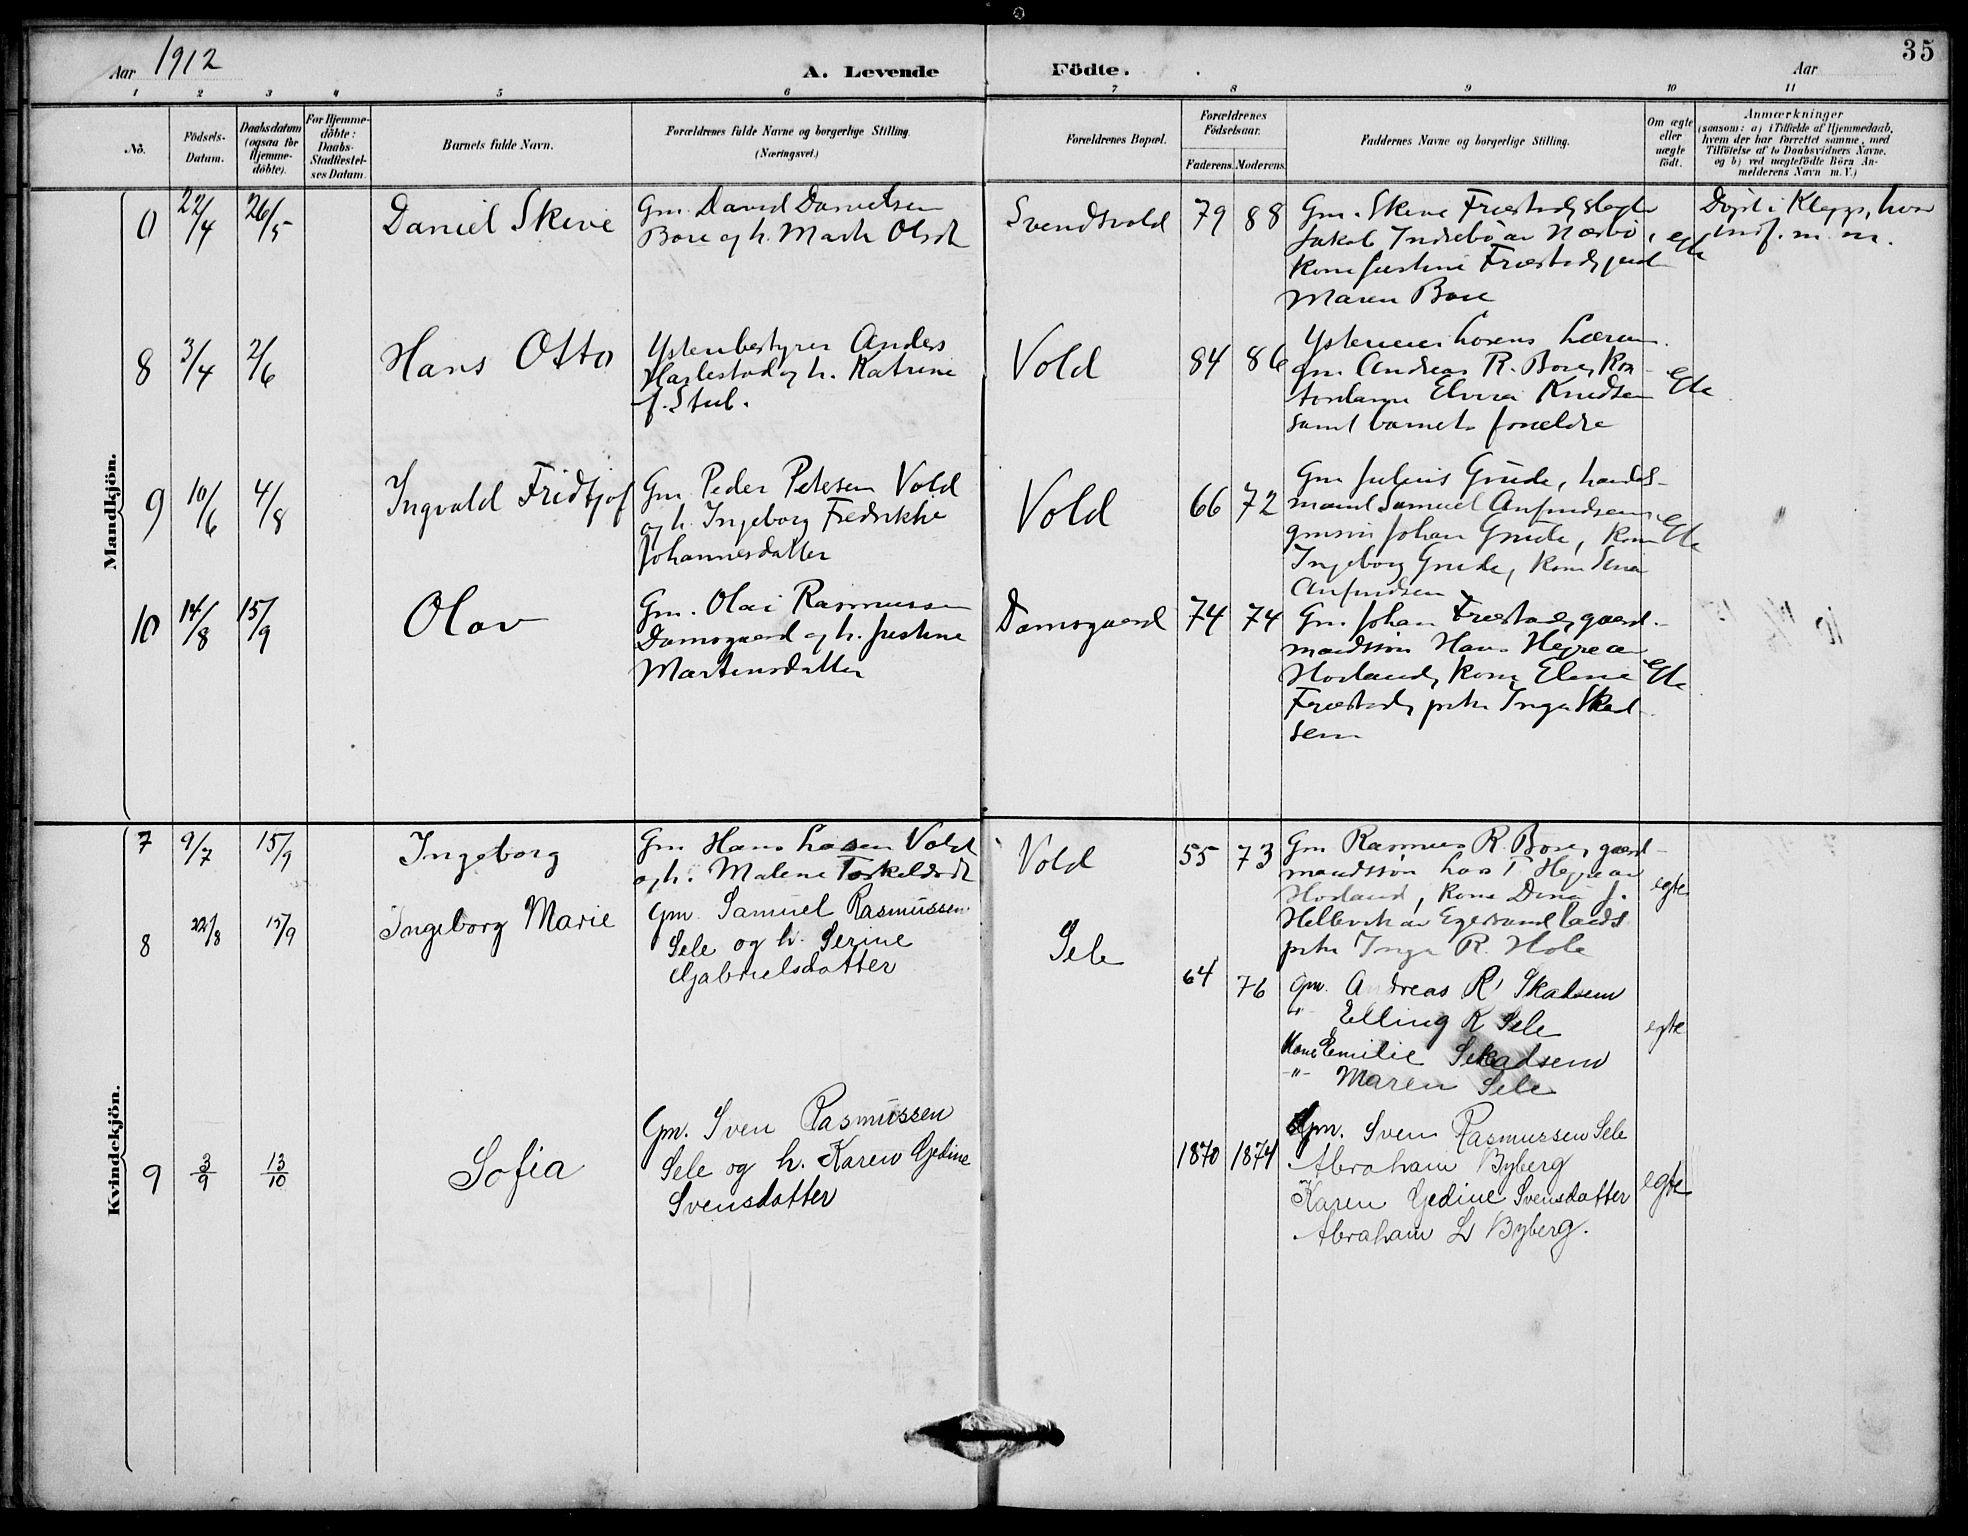 35
Aar 1912
A. Levende Födte.
Aar
1 2 3 4 5 6 7 8 9 10 11
Nö.
Födsels-
Datum.
Daabsdatum
(ogsaa for
Hjemme-
döbte).
For Hjemme-
döbte:
Daabs-
Stadfæstel-
ses Datum.
Barnets fulde Navn.
Forældrenes fulde Navne og borgerlige Stilling.
(Næringsvei.)
Forældrenes Bopæl.
Forældrenes
Födselsaar.
Faderens. Moderens.
Faddernes Navne og borgerlige Stilling.
Om ægte
eller
uægte
födt.
Anmærkninger
(saasom: a) i Tilfælde af Hjemmedaab,
hvem der har forrettet samme, med
Tilföielse af to Daabsvidners Navne,
og b) ved uægtefödte Börn An-
melderens Navn m. V.)
Mandkjön.
0 22/4 26/5
Daniel Skeie
Gm. David Danielsen
Bore og h. Marta Olsdt
Svendsvold
79 88
Gm. Skeie Friestad,
Jakob Indrebö av Nærbö,
kone Justine Friestad,
Maren Bore
egte
Döpt i Klepp, hvor
indf. m. m.
8 3/4 2/6
Hans Otto
Ysteribestyrer Anders
Harlestad og h. Katrine
f. Stub.
Vold
84 86
gm. Andreas R. Bore, kon-
Elvira Knudsen
samt barnets forældre
egte
9 10/6 4/8
Ingvald Fridtjof
Gm. Peder Petersen Vold
og h. Ingeborg Fredrikke
Johannesdatter
Vold
66 72
Gm Julius Grude, handels-
mand Samuel Anfindsen
gmsön Johan Grude, kone
Ingeborg Grude, kone
Anfindsen
egte
10 14/8 15/9
Olav
Gm. Olai Rasmussen
Damsgaard og h. Justine
Martinsdatter
Damsgaard
74 74
Gm. Johan Friestad, gaard-
mandssön Hans Hegre av
Horland, kone Elene
Friestad, pike Inga Skad-
sem
egte
Kvindekjön.
7 9/7 15/9
Ingeborg
Gm Hans Larsen Vold
og h. Malene Torkeldsdt
Vold
55 73
Gm Rasmus R. Bore, gaard-
mandssön Lars T Hegre av
Horland, kone Dina J.
Hellevik av Egersund lands.
pike Inga R. Hole
egte
8 22/8 15/9
Ingeborg Marie
Gm. Samuel Rasmussen
Sele og h. Serine
Gabrielsdatter
Sele
64 76
Gm. Andreas R Skadsem
-"- Elling R Sele
Kone Emilie Skadsem
-"- Maren Sele
egte
9 3/9 13/10
Sofia
Gm. Sven Rasmussen
Sele og h. Karen Gedine
Svensdatter
1870 1874
Gm. Sven Rasmussen Sele
Abraham Byberg
Karen Gedine Svensdatter
Abraham L Byberg.
egte